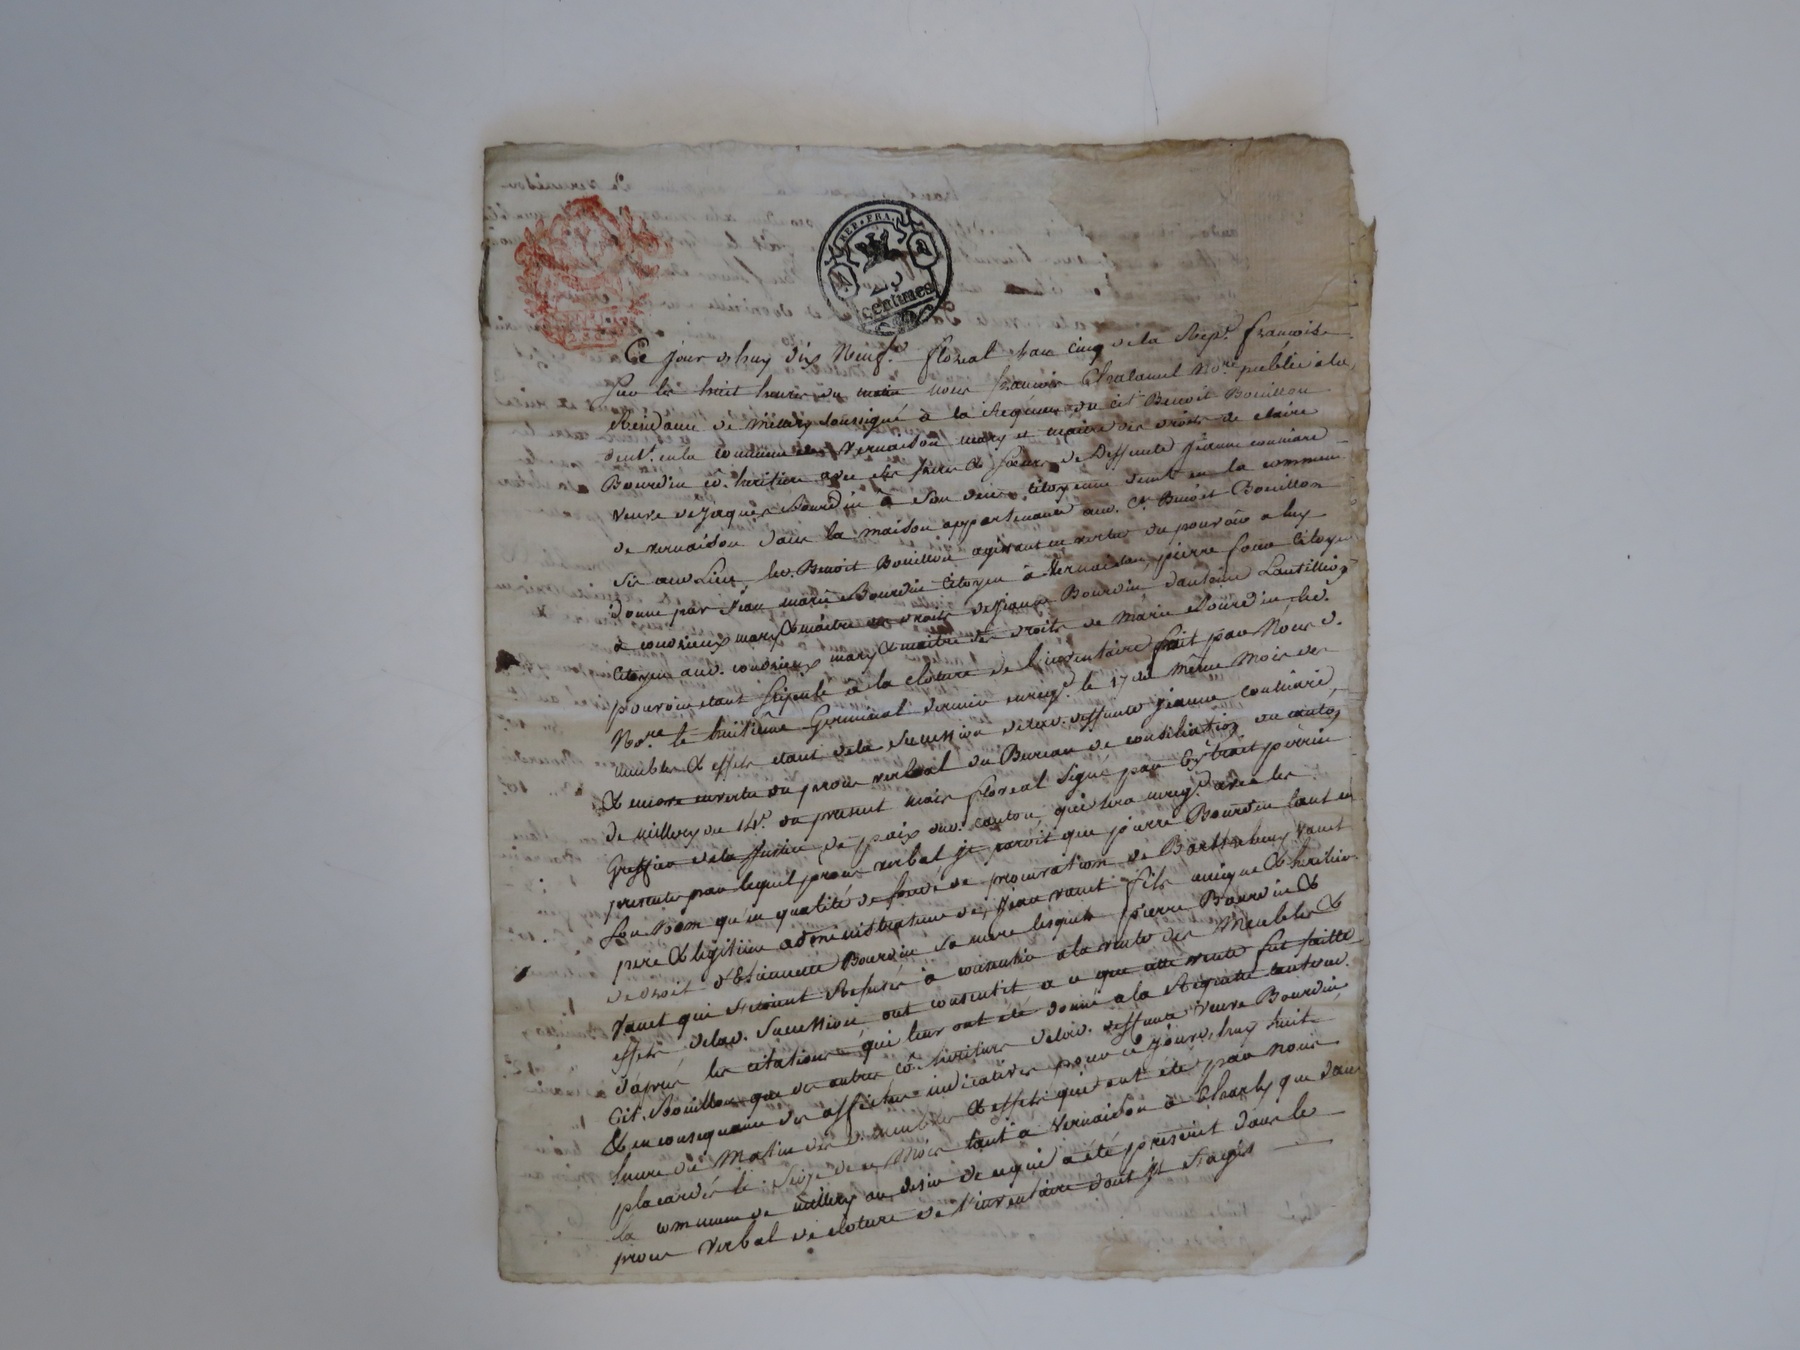 REP. FRA.
25
centimes
Ce jour dhuy dix Neuf.e floreal l'an cinq de la Rep.e françoise
sur les huit heures du matin nous francois No.re public a la
Residance de Millery soussigné à la Requete du cit. Benoit Bouillon
demt. en la commune de Vernaison mary et maitre des droits de claire
Bourdin cô-heritiere avec ses freres & sœurs de Deffunte jeanne couniard
veuve de jaques Bourdin à son deces citoyenne demt. en la commune
de vernaison dans la maison appartenante aud. Ct. Benoit Bouillon
sis aud Lieu, led. Benoit Bouillon agissant en vertu du pouvoir a luy
donné par jean marie Bourdin Citoyen à Vernaison, pierre Citoyen
à condrieux mary & maitre des droits de jeanne Bourdin dantoine
Citoyen aud. condrieux mary & maitre des droits de marie Bourdin, led.
pouvoir etant stipulé à la clôture de l'inventaire fait par Nous d.
No.re le huitieme Germinal dernier enregt. le 17 du même mois des
meubles & effets etant de la succession de lad. deffunte jeanne couniard,
& encore en vertu du procès verbal du Bureau de consiliation du canton
de millery du 14.e du present mois floreal signé par Extrait perrin
Greffier de la justice de paix dud. canton, qui sera enregt. avec les
presentes par lequel procès verbal jl paroit que pierre Bourdin tant en
son Nom qu'en qualité de fondé de procuration de Barthelemy vanet
pere & legitime administrateur de jean vanet fils unique & heritier
de droit d'Etiennette Bourdin sa mere lesquels pierre Bourdin &
vanet qui s'etoient Refusés à consentir a la vente des Meubles &
effets de lad. succession, ont consentit a ce que cette vente fut faitte
d'après les citations qui leur ont été donné a la Requete tant dud.
Cit. Bouillon que des autres cô-heritiers de lad. deffunte veuve Bourdin,
& en consequance des affiches indicatives pour ce jourd'huy huit
heure du Matin des d. meubles & effets qui ont été par nous
placardés le seize de ce Mois tant a Vernaison à Charly que dans
la commune de millery au desir de ce qui a été prescrit dans le
procès verbal de cloture de l'inventaire dont jl s'agit